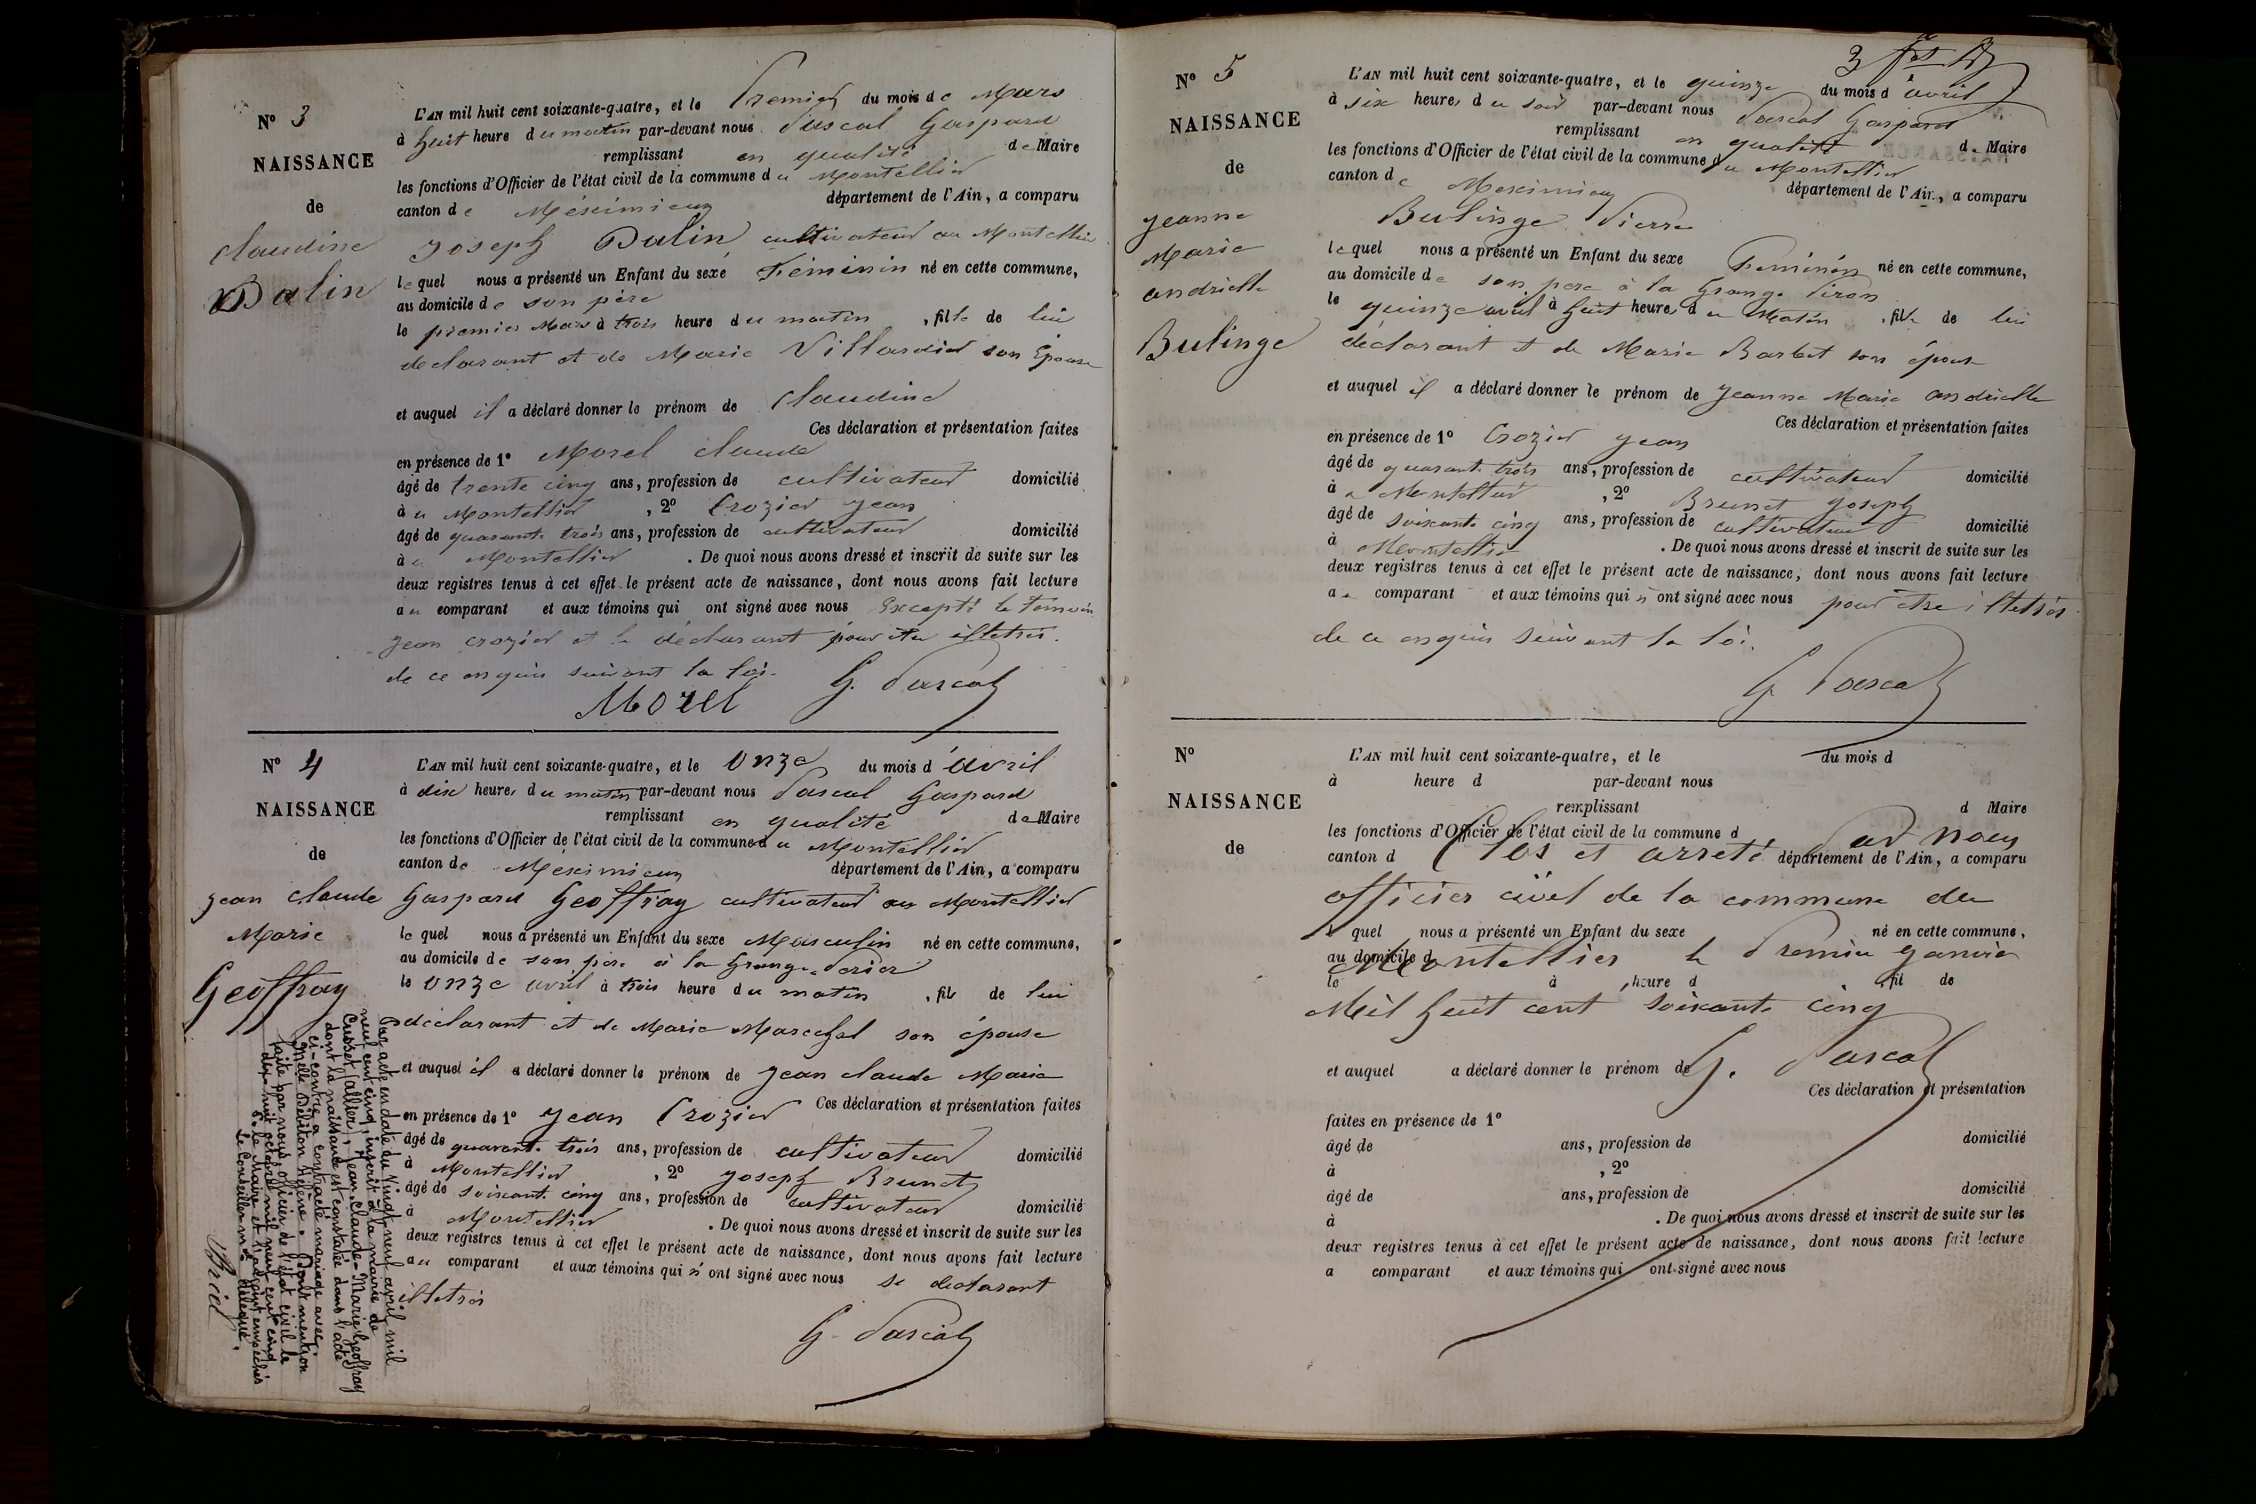 N° 3
NAISSANCE
de
Claudine
Dalin
L'AN mil huit cent soixante-quatre, et le Premier du mois de Mars
à huit heure du matin par-devant nous Pascal Gaspard
remplissant en qualité de Maire
les fonctions d'Officier de l'état civil de la commune du Montellier
canton de Méximieux département de l'Ain, a comparu
Joseph Dalin cultivateur au Montellier
lequel nous a présenté un Enfant du sexe Féminin né en cette commune,
au domicile de son père
le premier Mars à trois heure du matin, fille de lui
déclarant et de Marie Villardier son Epouse
et auquel il a déclaré donner le prénom de Claudine
Ces déclaration et présentation faites
en présence de 1° Morel Claude
âgé de trente cinq ans, profession de cultivateur domicilié
à u Montellier, 2° Crozier Jean
âgé de quarante trois ans, profession de cultivateur domicilié
à u Montellier. De quoi nous avons dressé et inscrit de suite sur les
deux registres tenus à cet effet le présent acte de naissance, dont nous avons fait lecture
au comparant et aux témoins qui ont signé avec nous Excepté le temoin
Jean crozier et le déclarant pour être illetrés.
de ce enquis suivant la loi.
Morel G. Pascal
N° 4
NAISSANCE
de
Jean Claude
Marie
Geoffray
L'AN mil huit cent soixante-quatre, et le Onze du mois d'Avril
à dix heures du matin par-devant nous Pascal Gaspard
remplissant en qualité de Maire
les fonctions d'Officier de l'état civil de la commune du Montellier
canton de Meximieux département de l'Ain, a comparu
Gaspard Geoffray cultivateur au Montellier
lequel nous a présenté un Enfant du sexe Masculin né en cette commune,
au domicile de son père à la Grange Perier
le Onze avril à trois heure du matin, fils de lui
déclarant et de Marie Marechal son épouse
et auquel il a déclaré donner le prénom de Jean Claude Marie
Ces déclaration et présentation faites
en présence de 1° Jean Crozier
âgé de quarante trois ans, profession de cultivateur domicilié
à Montellier, 2° Joseph Brunet
âgé de soixante cinq ans, profession de cultivateur domicilié
à Montellier. De quoi nous avons dressé et inscrit de suite sur les
deux registres tenus à cet effet le présent acte de naissance, dont nous avons fait lecture
au comparant et aux témoins qui n'ont signé avec nous se declarant
illetrés
G. Pascal
Par acte en date du Vingt neuf avril mil
neuf cent cinq, inscrit à la mairie de
Cusset (Allier), Jean-Claude-Marie Geoffray
dont la naissance est constatée dans l'acte
ci-contre a contracté mariage avec
Melle Hélène. Dont mention
faite par nous officier de l'état civil le
dix-huit octobre mil neuf cent cinq
P. le Maire et l'adjoint empêchés
Le Conseiller m. délégué,
N° 5
NAISSANCE
de
Jeanne
Marie
andrielle
Bulinge
L'AN mil huit cent soixante-quatre, et le quinze du mois d'avril
à six heures du soir par-devant nous Pascal Gaspard
remplissant en qualité de Maire
les fonctions d'Officier de l'état civil de la commune du Montellier
canton de Meximieux département de l'Ain, a comparu
Bulinge Pierre
lequel nous a présenté un Enfant du sexe Feminin né en cette commune,
au domicile de son père à la Grange Piron
le quinze avril à huit heures du Matin, fille de lui
déclarant et de Marie Barbet son épouse
et auquel il a déclaré donner le prénom de Jeanne Marie andrielle
Ces déclaration et présentation faites
en présence de 1° Crozier Jean
âgé de quarante trois ans, profession de cultivateur domicilié
à u Montellier, 2° Brunet Joseph
âgé de soixante cinq ans, profession de cultivateur domicilié
à Montellier. De quoi nous avons dressé et inscrit de suite sur les
deux registres tenus à cet effet le présent acte de naissance, dont nous avons fait lecture
au comparant et aux témoins qui n'ont signé avec nous pour être illetrés
de ce enquis suivant la loi.
G. Pascal
N°
NAISSANCE
de
L'AN mil huit cent soixante-quatre, et le du mois d
à heure d par-devant nous
remplissant d Maire
les fonctions d'Officier de l'état civil de la commune d
canton d département de l'Ain, a comparu
Clos et arreté par nous
officier civil de la commune du
le quel nous a présenté un Enfant du sexe né en cette commune,
au domicile d
Montellier le Premier Janvier
le à heure d, fil de
Mil huit cent soixante cinq
G. Pascal
et auquel a déclaré donner le prénom de
Ces déclaration et présentation
faites en présence de 1°
âgé de ans, profession de domicilié
à, 2°
âgé de ans, profession de domicilié
à. De quoi nous avons dressé et inscrit de suite sur les
deux registres tenus à cet effet le présent acte de naissance, dont nous avons fait lecture
a comparant et aux témoins qui ont signé avec nous